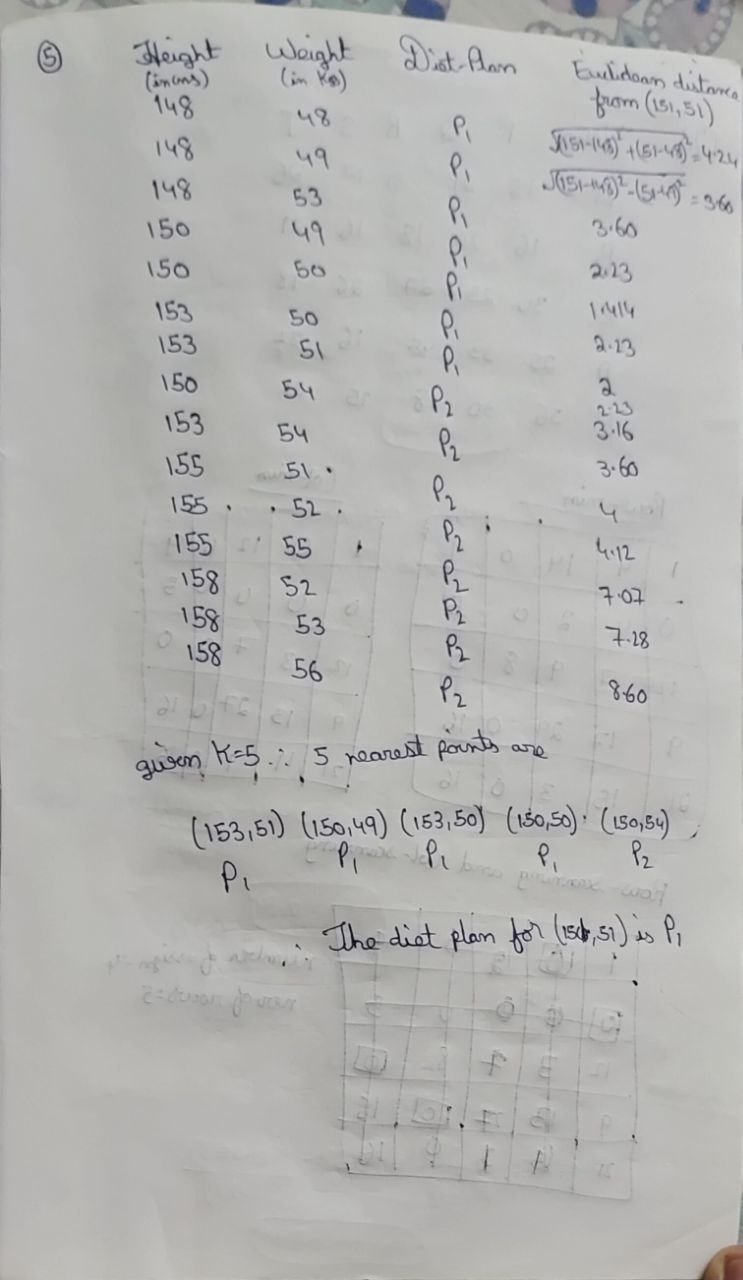 ⑤ Height Weight Diet-Plan Euclidean distance
(in cms) (in Kg) from (151,51)
148 48 P1 √(151-148)²+(51-48)² = 4.24
148 49 P1 √(151-148)²-(51-49)² = 3.60
148 53 P1 3.60
150 49 P1 2.23
150 50 P1 1.414
153 50 P1 2.23
153 51 P1 2
150 54 P2 2.23 3.16
153 54 P2 3.60
155 51 P2 4
155 52 P2 4.12
155 55 P2 7.07
158 52 P2 7.28
158 53 P2 8.60
158 56 P2
given K=5 ∴ 5 nearest points are
(153,51) (150,49) (153,50) (150,50) (150,54)
P1 P1 P1 P1 P2
∴ The diet plan for (151,51) is P1